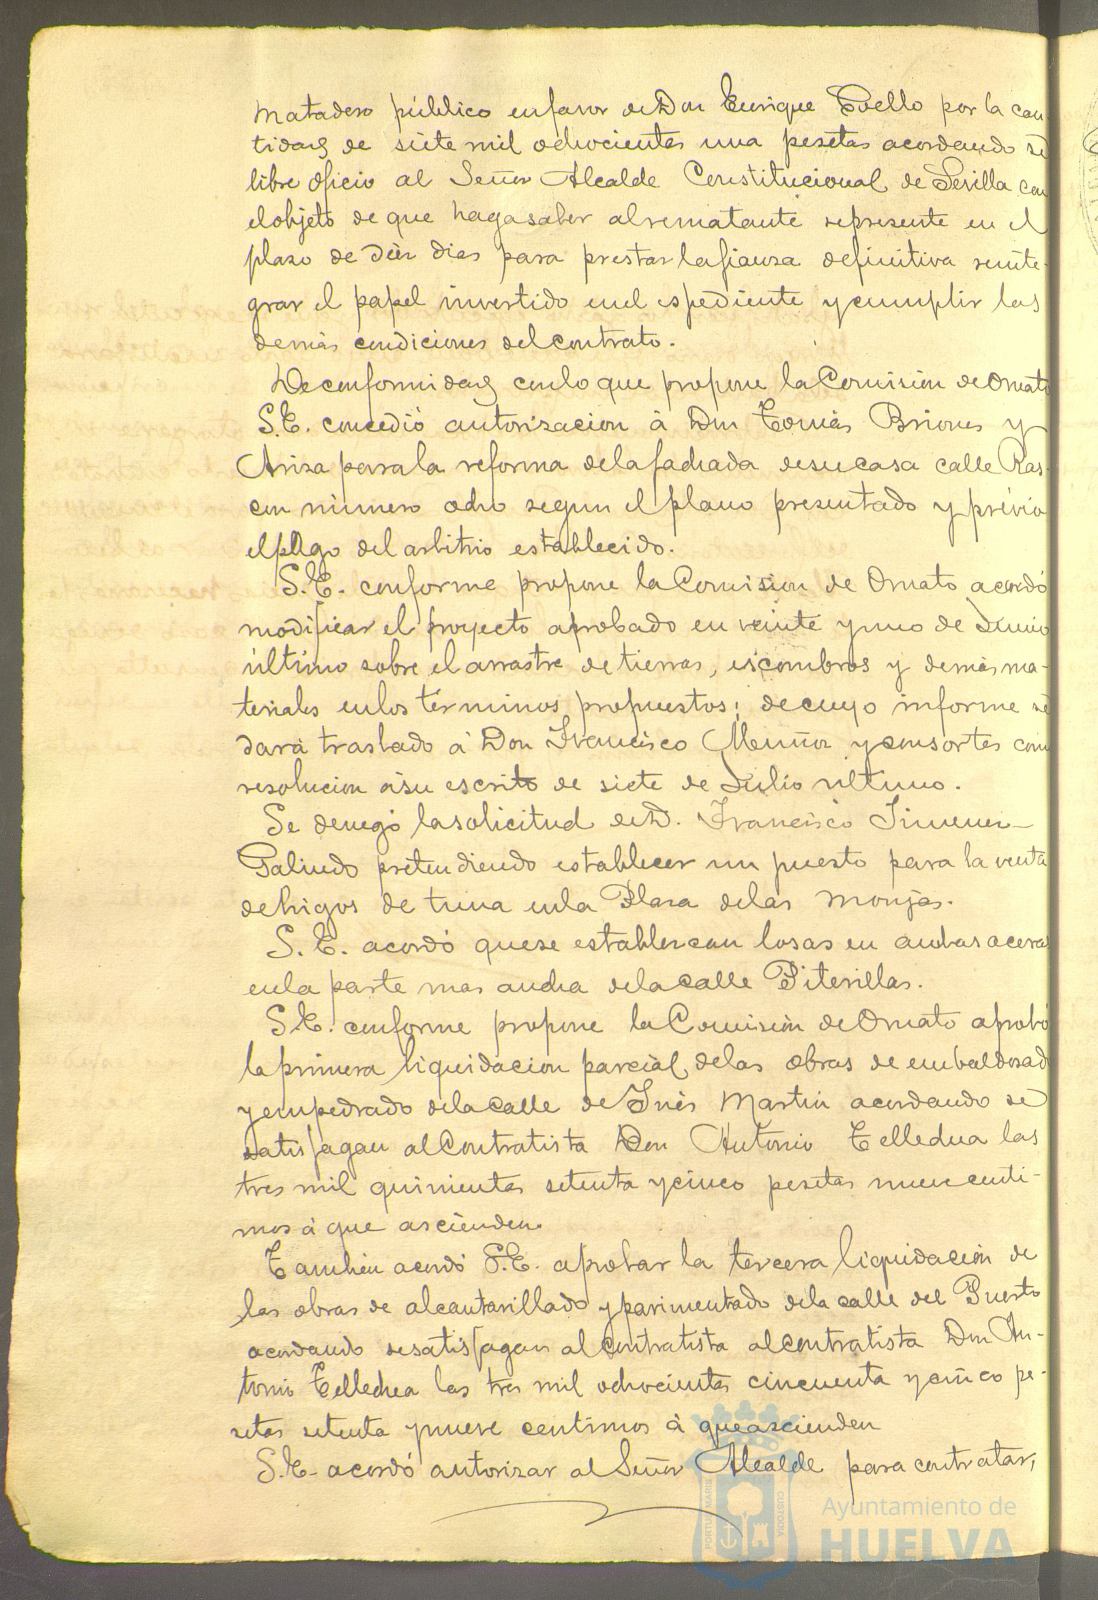 Matadero público en favor de Don Enrique Coello por la can-
tidad de siete mil ochocientas una pesetas acordando se
libre oficio al Señor Alcalde Constitucional de Sevilla con
el objeto de que haga saber al rematante se presente en el
plazo de diez dias para prestar la fianza definitiva reinte-
grar el papel invertido en el espediente y cumplir las
demás condiciones del contrato.
De conformidad con lo que propone la Comisión de Ornato
S.E. concedió autorizacion á Don Tomás Briones y
Ariza para la reforma de la fachada de su casa calle Ras-
con número ocho segun el plano presentado y prévio
el pago del arbitrio establecido.
S.E. conforme propone la Comision de Ornato acordó
modificar el proyecto aprobado en veinte y uno de Junio
último sobre el arrastre de tierras, escombros y demás ma-
teriales en los términos propuestos; de cuyo informe se
dará traslado á Don Francisco Muñoz y consortes como
resolucion á su escrito de siete de Julio último.
Se denegó la solicitud de D. Francisco Jimenez
Galindo pretendiendo establecer un puesto para la venta
de higos de tuna en la Plaza de las Monjas.
S.E. acordó que se establezcan losas en ambas aceras
en la parte mas ancha de la calle Piterillas.
S.E. conforme propone la Comisión de Ornato aprobó
la primera liquidacion parcial de las obras de embaldosado
y empedrado de la calle de Inés Martin acordando se
satisfagan al Contratista Don Antonio Tellechea las
tres mil quinientas setenta y cinco pesetas nueve centi-
mos á que ascienden.
Tambien acordó S.E. aprobar la tercera liquidación de
las obras de alcantarillado y pavimentado de la calle del Puerto
acordando se satisfagan al Contratista al contratista Don An-
tonio Tellechea las tres mil ochocientas cincuenta y cinco pe-
setas setenta y nueve centimos á que ascienden
S.E. acordó autorizar al Señor Alcalde para contratar,
PORTUS MARIS CUSTODIA
Ayuntamiento de
HUELVA